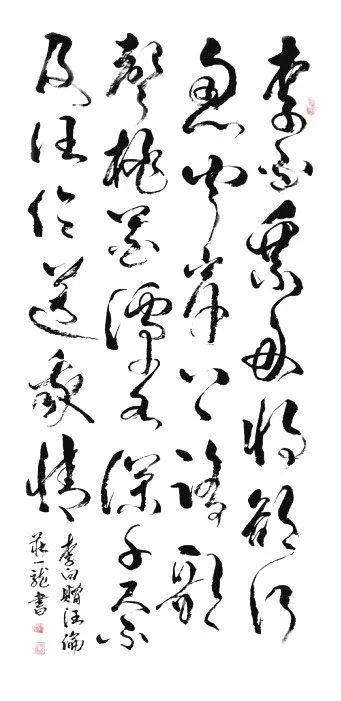 李白乘舟将欲行
忽闻岸上踏歌
声桃花潭水深千尺不
及汪伦送我情
李白赠汪伦
庄一龙书